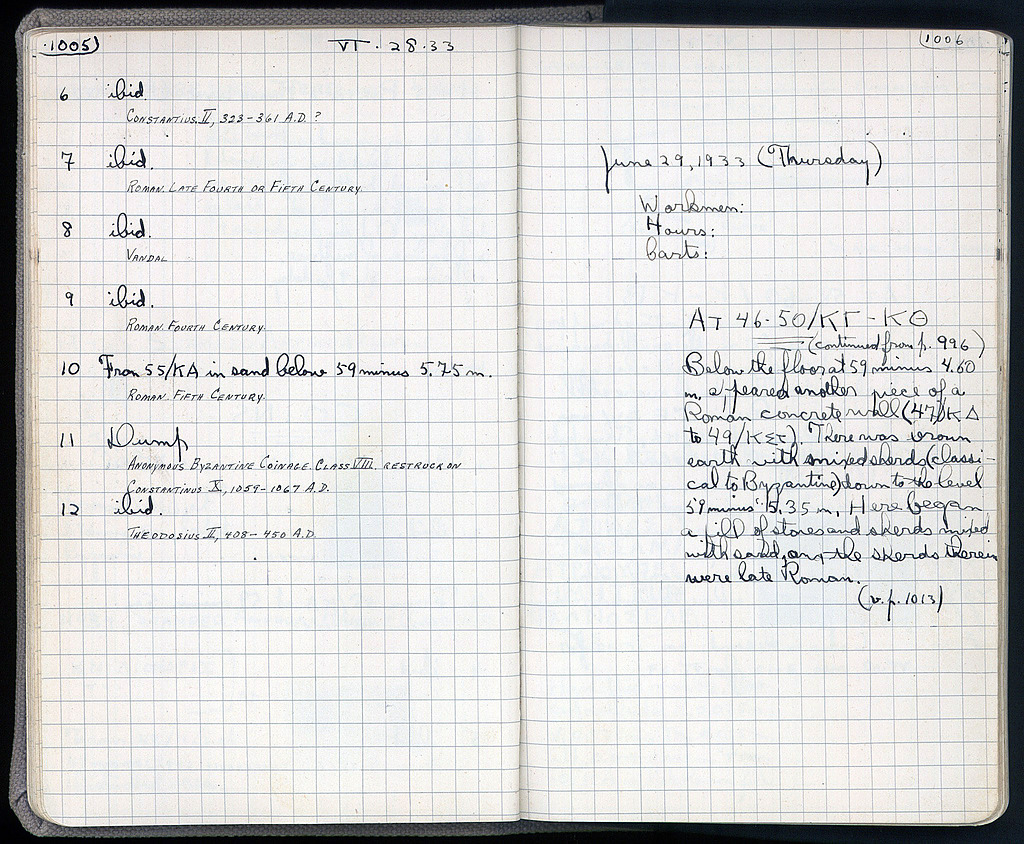 1005)
VI · 28·33
6 ibid.
CONSTANTIUS II, 323-361 A.D. ?
7 ibid.
ROMAN. LATE FOURTH OR FIFTH CENTURY.
8 ibid.
VANDAL
9 ibid.
ROMAN. FOURTH CENTURY.
10 From 55/ΚΔ in sand below 59 minus 5.75 m.
ROMAN. FIFTH CENTURY.
11 Dump
ANONYMOUS BYZANTINE COINAGE. CLASS VIII. RESTRUCK ON
CONSTANTINUS X, 1059-1067 A.D.
12 ibid.
THEODOSIUS II, 408-450 A.D.
(1006
June 29, 1933 (Thursday)
Workmen:
Hours:
Carts:
AT 46-50/ΚΓ-ΚΘ
(continued from p. 996)
Below the floor at 59 minus 4.60
m. appeared another piece of a
Roman concrete wall (47/ΚΔ
to 49/ΚΣΤ). There was brown
earth with mixed sherds (classi-
cal to Byzantine) down to the level
59 minus 5.35 m. Here began
a fill of stones and sherds mixed
with sand, and the sherds therein
were late Roman.
(v. p. 1013)